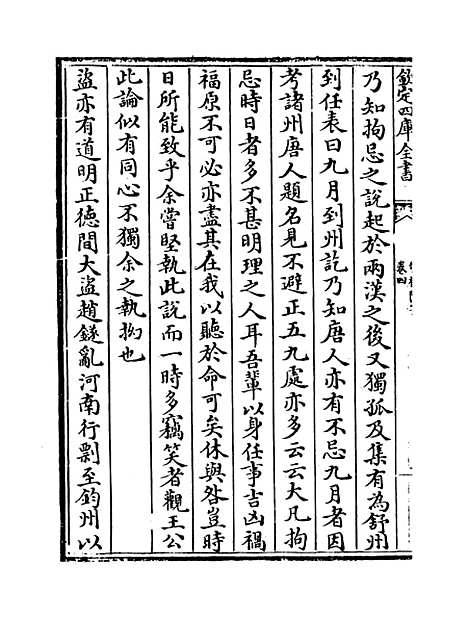 欽定四庫全書
卷四
乃知拘忌之說起於兩漢之後又獨孤及集有為舒州
到任表曰九月到州訖乃知唐人亦有不忌九月者因
考諸州唐人題名見不避正五九處亦多云云大凡拘
忌時日者多不甚明理之人耳吾輩以身任事吉凶禍
福原不可必亦盡其在我以聽於命可矣休與咎豈時
日所能致乎余嘗堅執此說而一時多竊笑者觀王公
此論似有同心不獨余之執拗也
盜亦有道明正徳間大盜趙鐩亂河南行剽至鈞州以